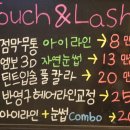 Touch & Lash
점막무통 아이라인 → 8만
엠보3D 자연눈썹 → 13만
틴트입술 풀 칼라 → 20
반영구헤어라인교정 → 25
아이라인 + 눈썹 Combo → 2